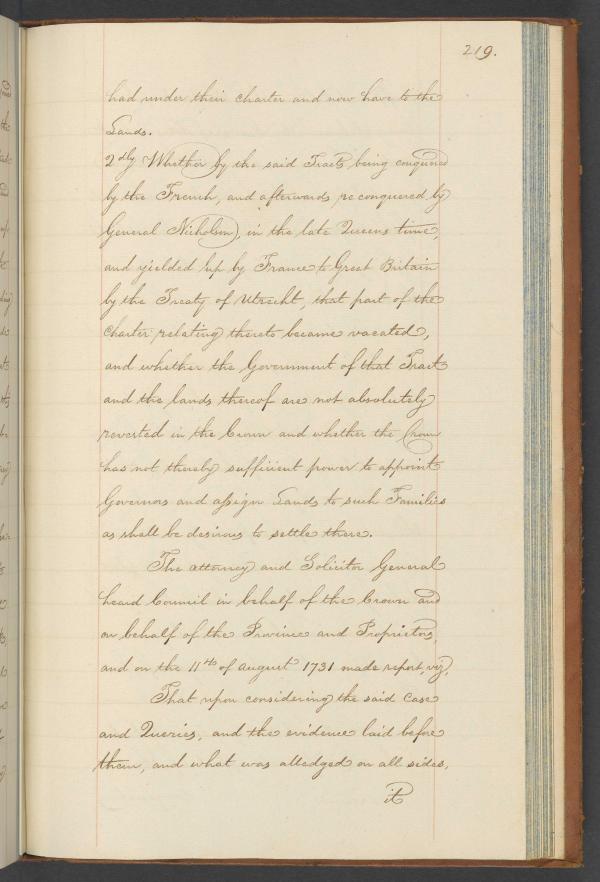 219.
had under their charter and now have to the
Lands.
2dly Whether by the said Tract, being conquered
by the French, and afterwards reconquered by
General Nicholson, in the late Queens time,
and yielded up by France to Great Britain
by the Treaty of Utrecht, that part of the
Charter relating thereto became vacated,
and whether the Government of that Tract
and the lands thereof are not absolutely
revested in the Crown and whether the Crown
has not thereby sufficient power to appoint
Governors and assign Lands to such Families
as shall be desirous to settle there.
The attorney and Solicitor General
heard Council in behalf of the Crown and
on behalf of the Province and Proprietors,
and on the 11th of august 1731 made report viz,
That upon considering the said Case
and Queries, and the evidence laid before
them, and what was alledged on all sides,
it